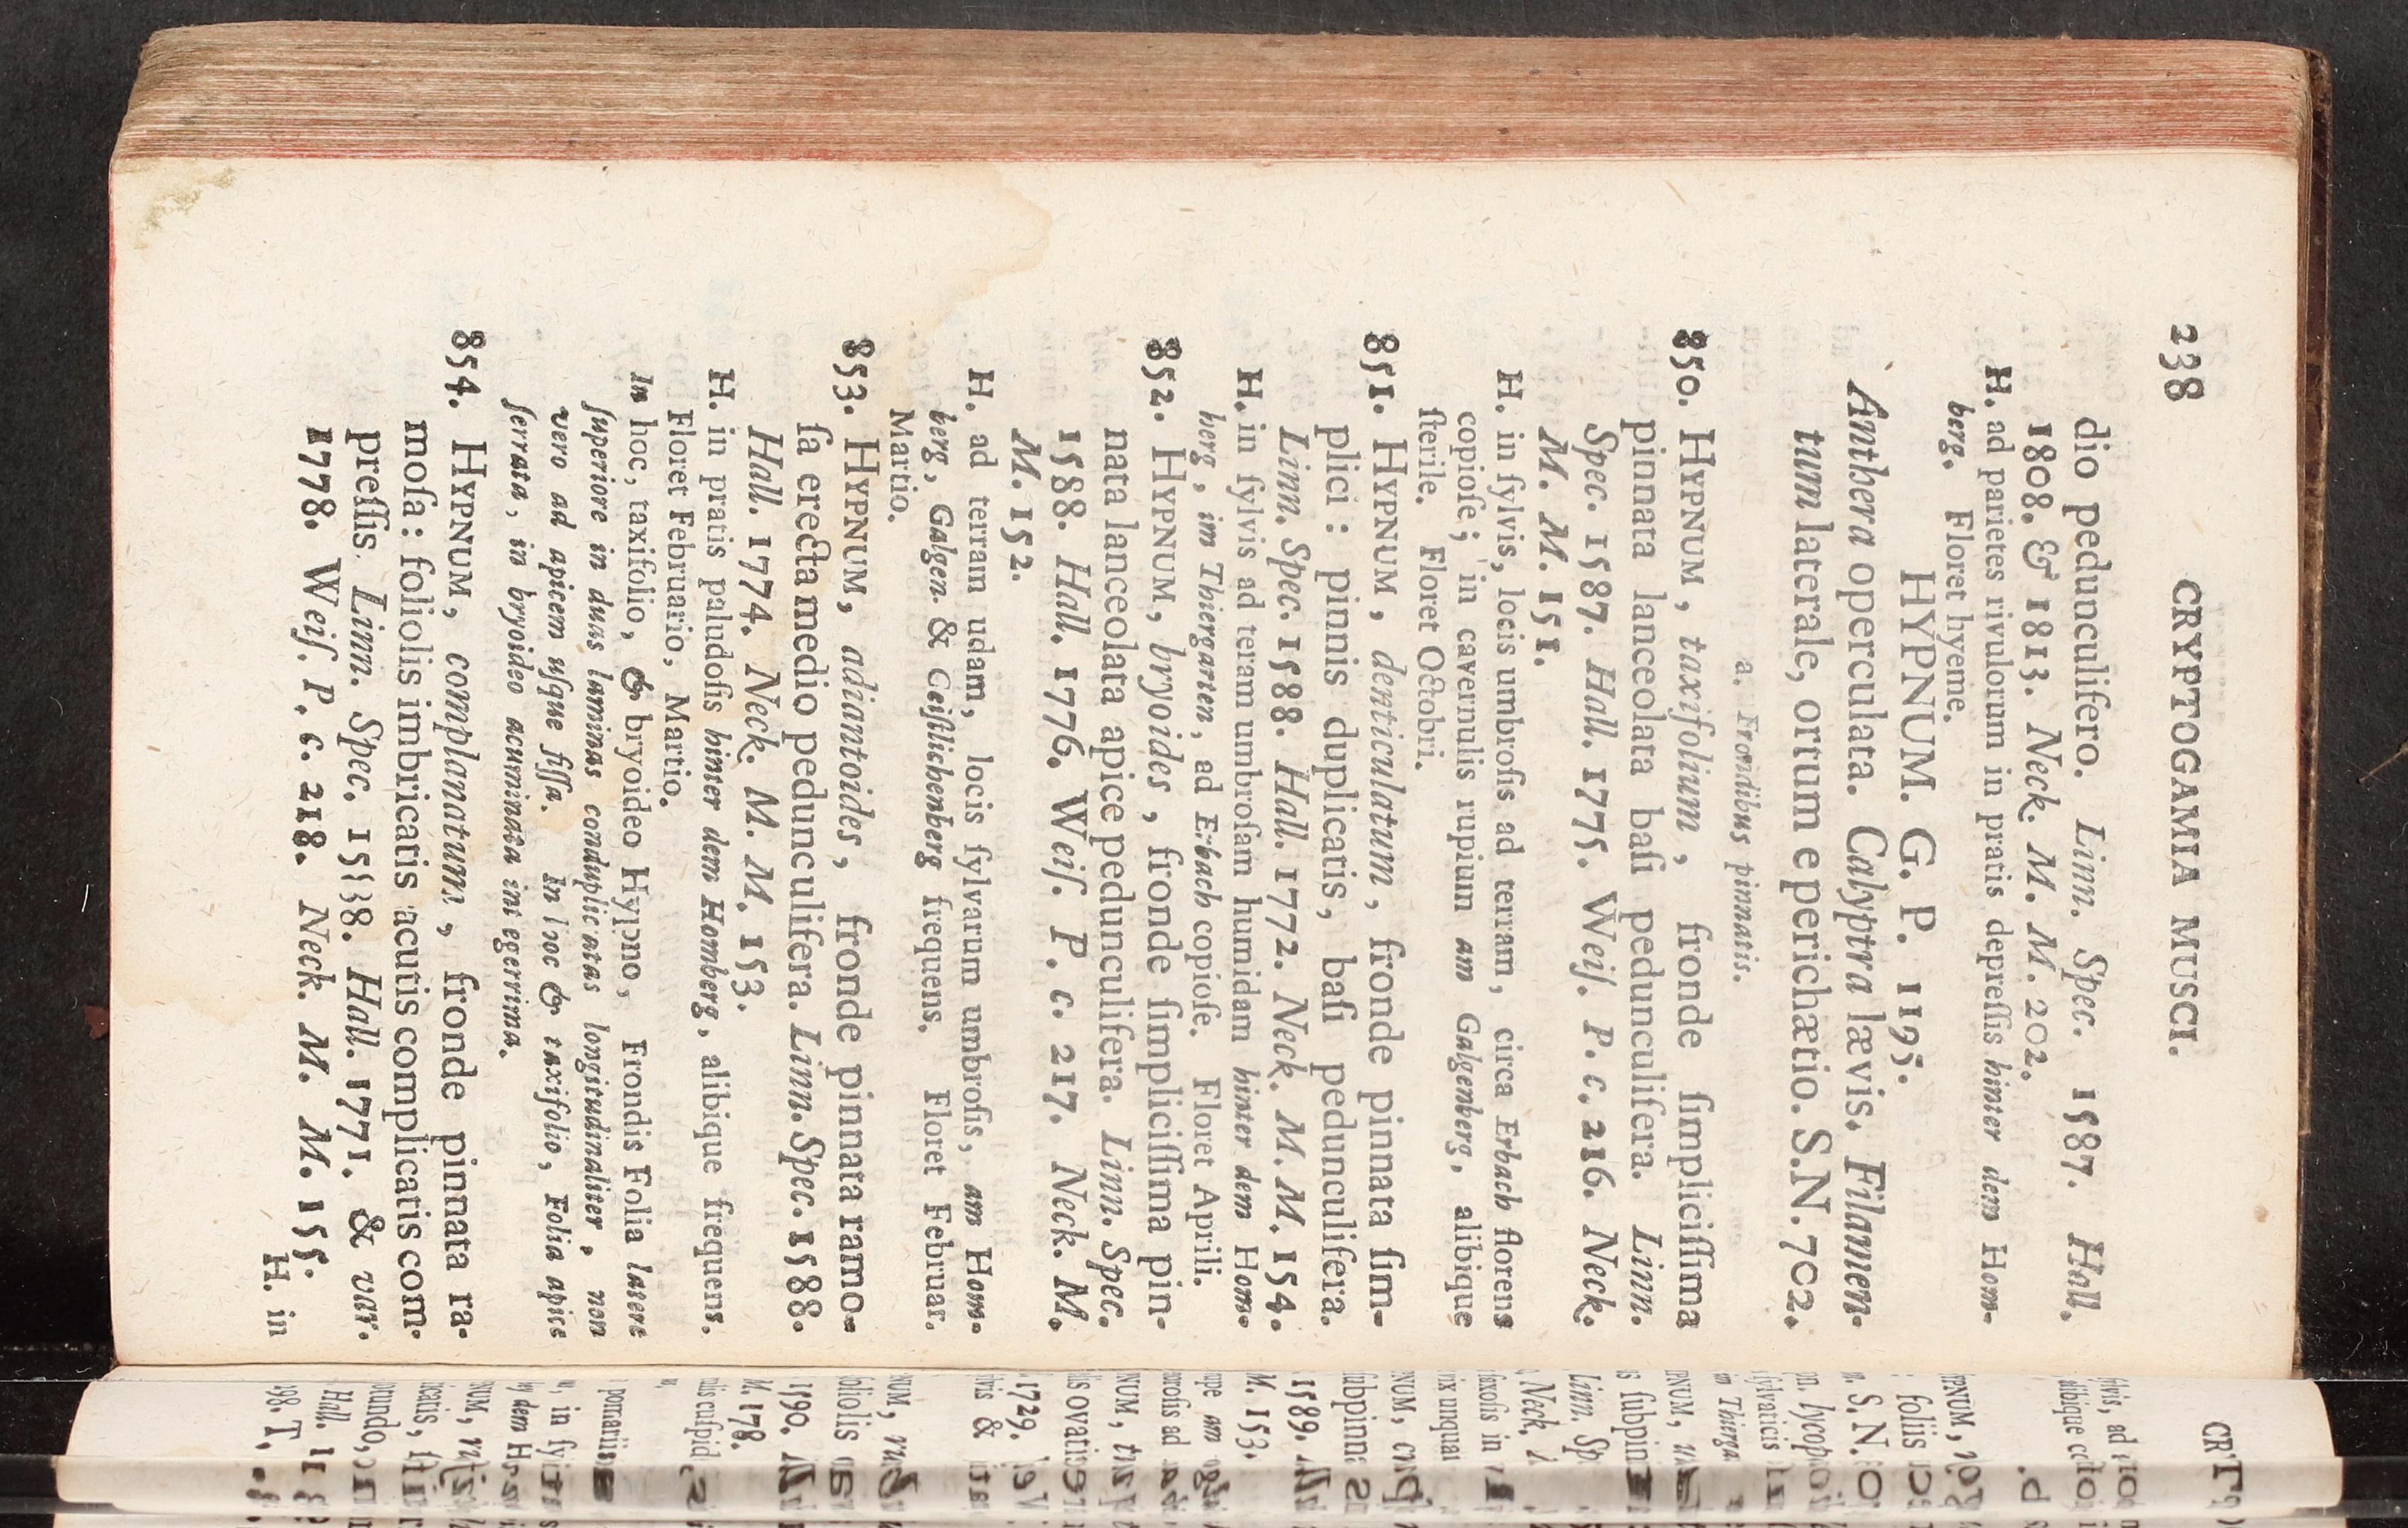 238 CRYPTOGAMIA MUSCI.
dio pedunculifero. Linn. Spec. 1587. Hall.
1808. & 1813. Neck. M. M. 202.
H. ad parietes rivulorum in pratis depreſſis hinter dem Hom-
berg. Floret hyeme.
HYPNUM. G. P. 1195.
Anthera operculata. Calyptra lævis. Filamen-
tum laterale, ortum e perichætio. S.N. 702.
a. Frondibus pinnatis.
850. HYPNUM, taxifolium, fronde ſimpliciſſima
pinnata lanceolata baſi pedunculifera. Linn.
Spec. 1587. Hall. 1775. Weiſ. P. c. 216. Neck.
M. M. 151.
H. in ſylvis, locis umbroſis ad terram, circa Erbach florens
copioſe; in cavernulis rupium am Galgenberg, alibique
ſterile. Floret Octobri.
851. HYPNUM, denticulatum, fronde pinnata ſim-
plici: pinnis duplicatis, baſi pedunculifera.
Linn. Spec. 1588. Hall. 1772. Neck. M. M. 154.
H. in ſylvis ad teram umbroſam humidam hinter dem Hom-
berg, im Thiergarten, ad Erbach copioſe. Floret Aprili.
852. HYPNUM, bryoides, fronde ſimpliciſſima pin-
nata lanceolata apice pedunculifera. Linn. Spec.
1588. Hall. 1776. Weiſ. P. c. 217. Neck. M.
M. 152.
H. ad terram udam, locis ſylvarum umbroſis, am Hom-
berg, Galgen- & Geiſtlichenberg frequens. Floret Februar.
Martio.
853. HYPNUM, adiantoides, fronde pinnata ramo-
ſa erecta medio pedunculifera. Linn. Spec. 1588.
Hall. 1774. Neck. M. M. 153.
H. in pratis paludoſis hinter dem Homberg, alibique frequens.
Floret Februario, Martio.
In hoc, taxifolio, & bryoideo Hypno, Frondis Folia latere
ſuperiore in duas laminas conduplicatas longitudinaliter, non
vero ad apicem uſque fiſſa. In hoc & taxifolio, Folia apice
ſerrata, in bryoideo acuminata integerrima.
854. HYPNUM, complanatum, fronde pinnata ra-
moſa: foliolis imbricatis acutis complicatis com-
preſſis. Linn. Spec. 1588. Hall. 1771. & var.
1778. Weiſ. P. c. 218. Neck. M. M. 155.
H. in